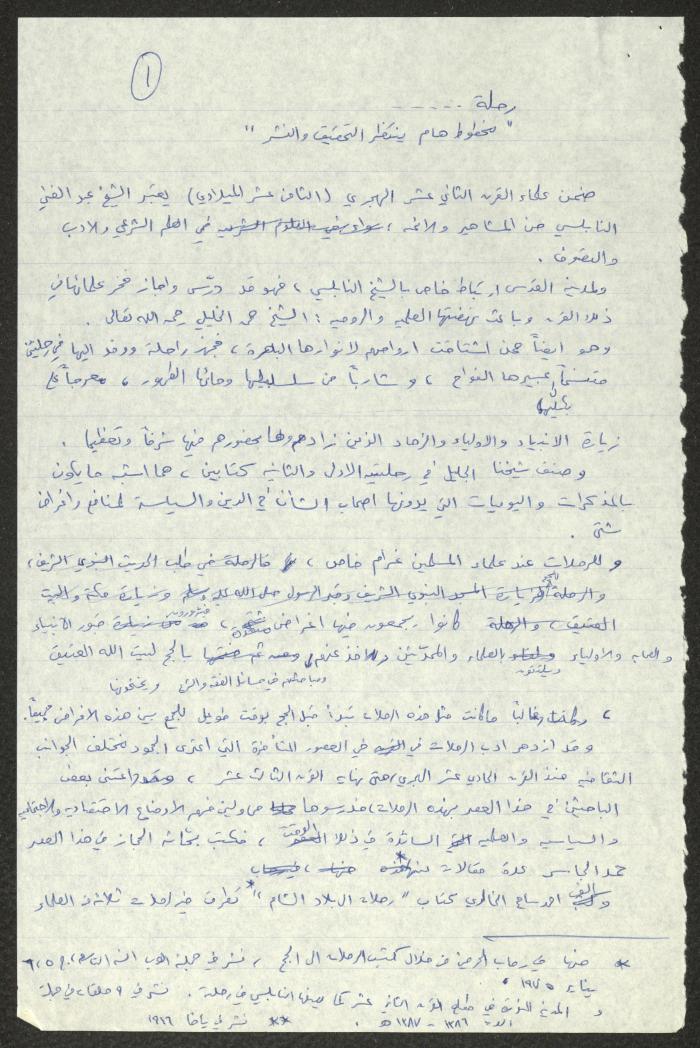 ١
رحلة . . . . . .
" مخطوط هام ينتظر التحقيق والنشر "
ضمن علماء القرن الثاني عشر الهجري (الثامن عشر الميلادي) يعتبر الشيخ عبد الغني
النابلسي من المشاهير والائمة ، سواء في العلوم الشرعية في العلم الشرعي والادب
والتصوف .
ولمدينة القدس ارتباط خاص بالشيخ النابلسي ، فهو قد درّس واجاز فخر علمائها في
ذلك القرن وباعث نهضتها العلمية والروحية : الشيخ محمد الخليلي رحمه الله تعالى .
وهو ايضاً ممن اشتاقت ارواحهم لانوارها الباهرة ، فجهز راحلة ووفد اليها في رحلتين
متنسماً عبيرها الفواح ، وشارباً من سلسبيلها ومائها الطهور ، معرجاً على
زيارة الانبياء والاولياء والزهاد الذين زادهم وها بحضورهم فيها شرفاً وتعظيما .
وصنف شيخنا الجليل في رحلتيه الاولى والثانية كتابين ، هما اشبه ما يكون
بالمذكرات واليوميات التي يدونها اصحاب الشأن في الدين والسياسة لمنافع واغراض
شتى .
وللرحلات عند علماء المسلمين غرام خاص ، فالرحلة في طلب الحديث النبوي الشريف ،
والرحلة لزيارة المسجد النبوي الشريف وقبر الرسول صلى الله عليه وسلم وزيارة مكة والبيت
العتيق ، والرحلة كانوا يجمعون فيها اغراض متعددة ، فيزورون قبور الانبياء
والصحابة والاولياء ويلتقون بالعلماء والمحدثين والاخذ عنهم بالحج لبيت الله العتيق
ومباحثتهم في مسائل الفقه والدين ويختمونها
، وغالباً ما كانت مثل هذه الرحلات تبدأ قبل الحج بوقت طويل للجمع بين هذه الاغراض جميعاً.
وقد ازدهر ادب الرحلات في العصور المتأخرة التي اعترى الجمود مختلف الجوانب
الثقافية منذ القرن الحادي عشر الهجري حتى نهاية القرن الثالث عشر ، وقد اعتنى بعض
الباحثين في هذا العصر بهذه الرحلات ، فدرسوها محاولين فهم الاوضاع الاقتصادية والاجتماعية
والسياسية والعلمية السائدة في ذلك الوقت ، فكتب بحّاثة الحجاز في هذا العصر
حمد الجاسر عدة مقالات عنها *
والف احمد سامح الخالدي كتاب " رحلات الى بلاد الشام " * تطرق فيه لرحلات ثلاثة من العلماء
* منها في رحاب الحرمين من خلال كتب الرحلات الى الحج ، نشر في مجلة العرب السنة
يناير ١٩٧٥ .
و المدينة المنورة في مطلع القرن الثاني عشر كما يصفها النابلسي في رحلته . نشر في ٩ حلقات في مجلة
١٣٨٦ - ١٣٨٧ هـ . ** نشر في يافا ١٩٤٦